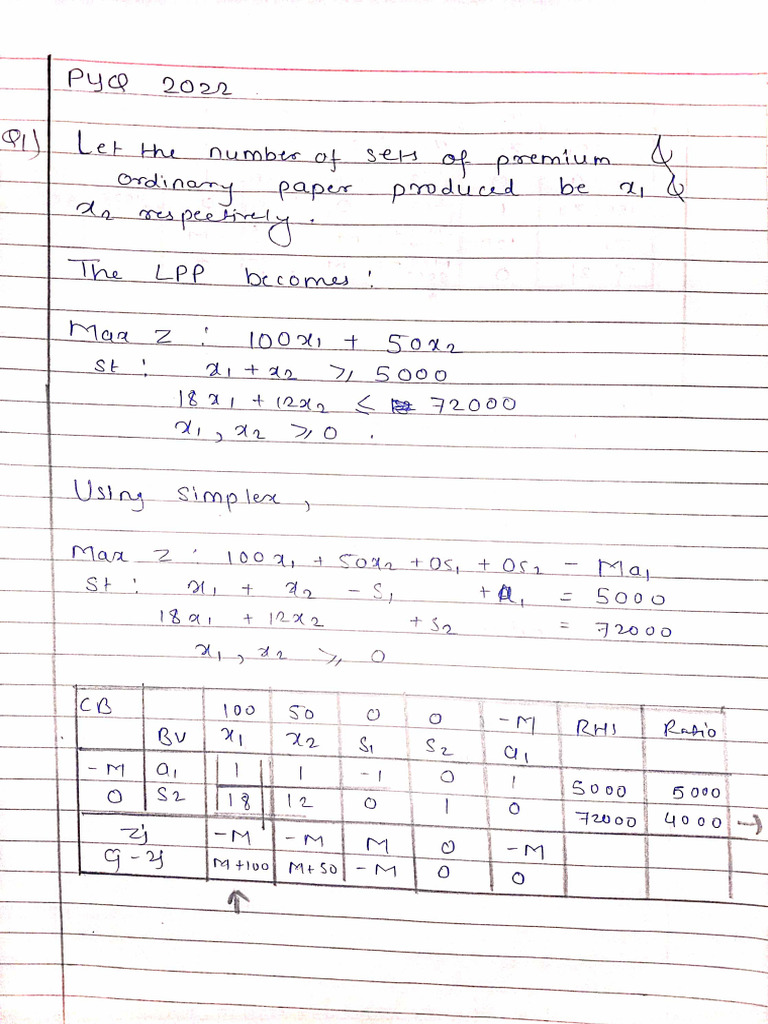 PYQ 2022.
Q1) Let the number of sets of premium &
ordinary paper produced be x1 &
x2 respectively.
The LPP becomes:
Max Z : 100x1 + 50x2
St : x1 + x2 ⩾ 5000
18x1 + 12x2 ≤ 72000
x1, x2 ⩾ 0.
Using simplex,
Max Z : 100x1 + 50x2 + 0s1 + 0s2 - Ma1
St : x1 + x2 - s1 + a1 = 5000
18x1 + 12x2 + s2 = 72000
x1, x2 ⩾ 0
CB 100 50 0 0 -M RHS Ratio
BV x1 x2 s1 s2 a1
-M a1 1 1 -1 0 1 5000 5000
0 s2 18 12 0 1 0 72000 4000 →
Zj -M -M M 0 -M
Cj - Zj M+100 M+50 -M 0 0
↑